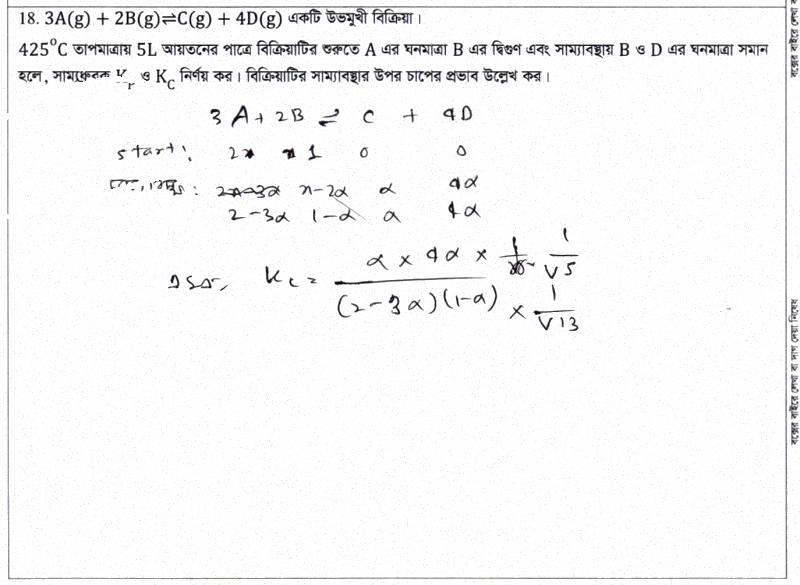 18. 3A(g) + 2B(g)⇌C(g) + 4D(g) একটি উভমুখী বিক্রিয়া।
425°C তাপমাত্রায় 5L আয়তনের পাত্রে বিক্রিয়াটির শুরুতে A এর ঘনমাত্রা B এর দ্বিগুণ এবং সাম্যাবস্থায় B ও D এর ঘনমাত্রা সমান
হলে, সাম্যধ্রুবক K_P ও K_C নির্ণয় কর। বিক্রিয়াটির সাম্যাবস্থার উপর চাপের প্রভাব উল্লেখ কর।
3A + 2B ⇌ C + 4D
start: 2 1 0 0
: 2x-3α x-2α α 4α
2-3α 1-α α 4α
K_c = α × 4α × 1/V5
(2-3α)(1-α) × 1/V13
বক্সের বাইরে লেখা বা দাগ দেয়া নিষেধ